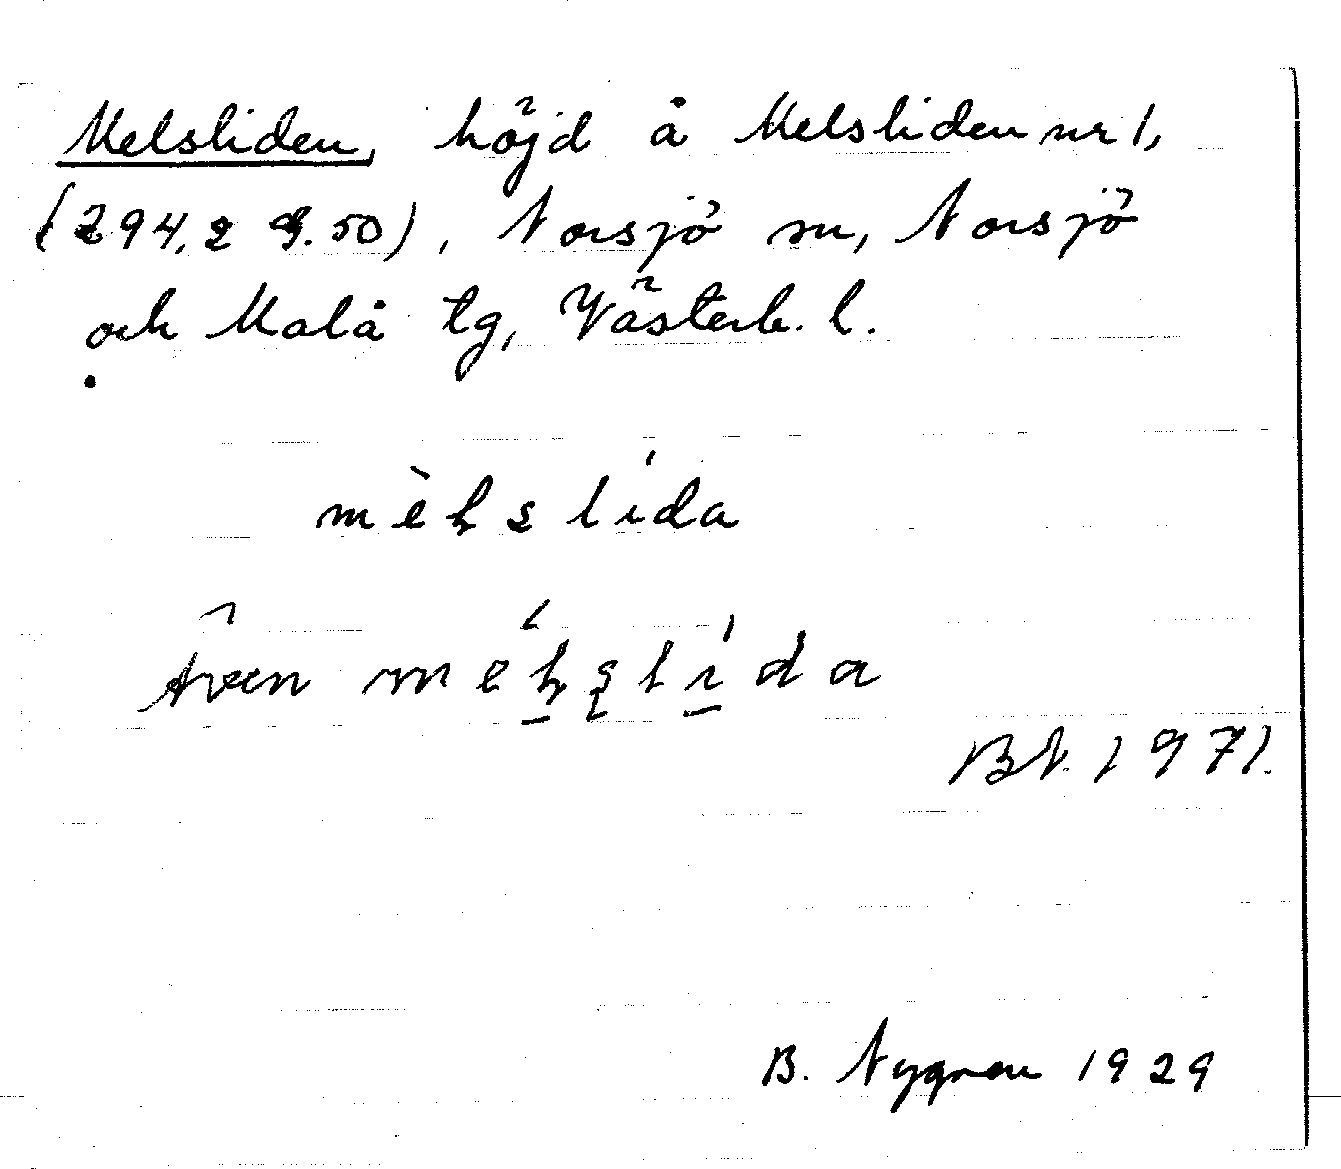 Melsliden, höjd å Melsliden nr 1,
(294,2 g.50), Norsjö sn, Norsjö
och Malå tg, Västerb. l.
mèłs lída
Även
BN. 1971.
B. Nygren 1929